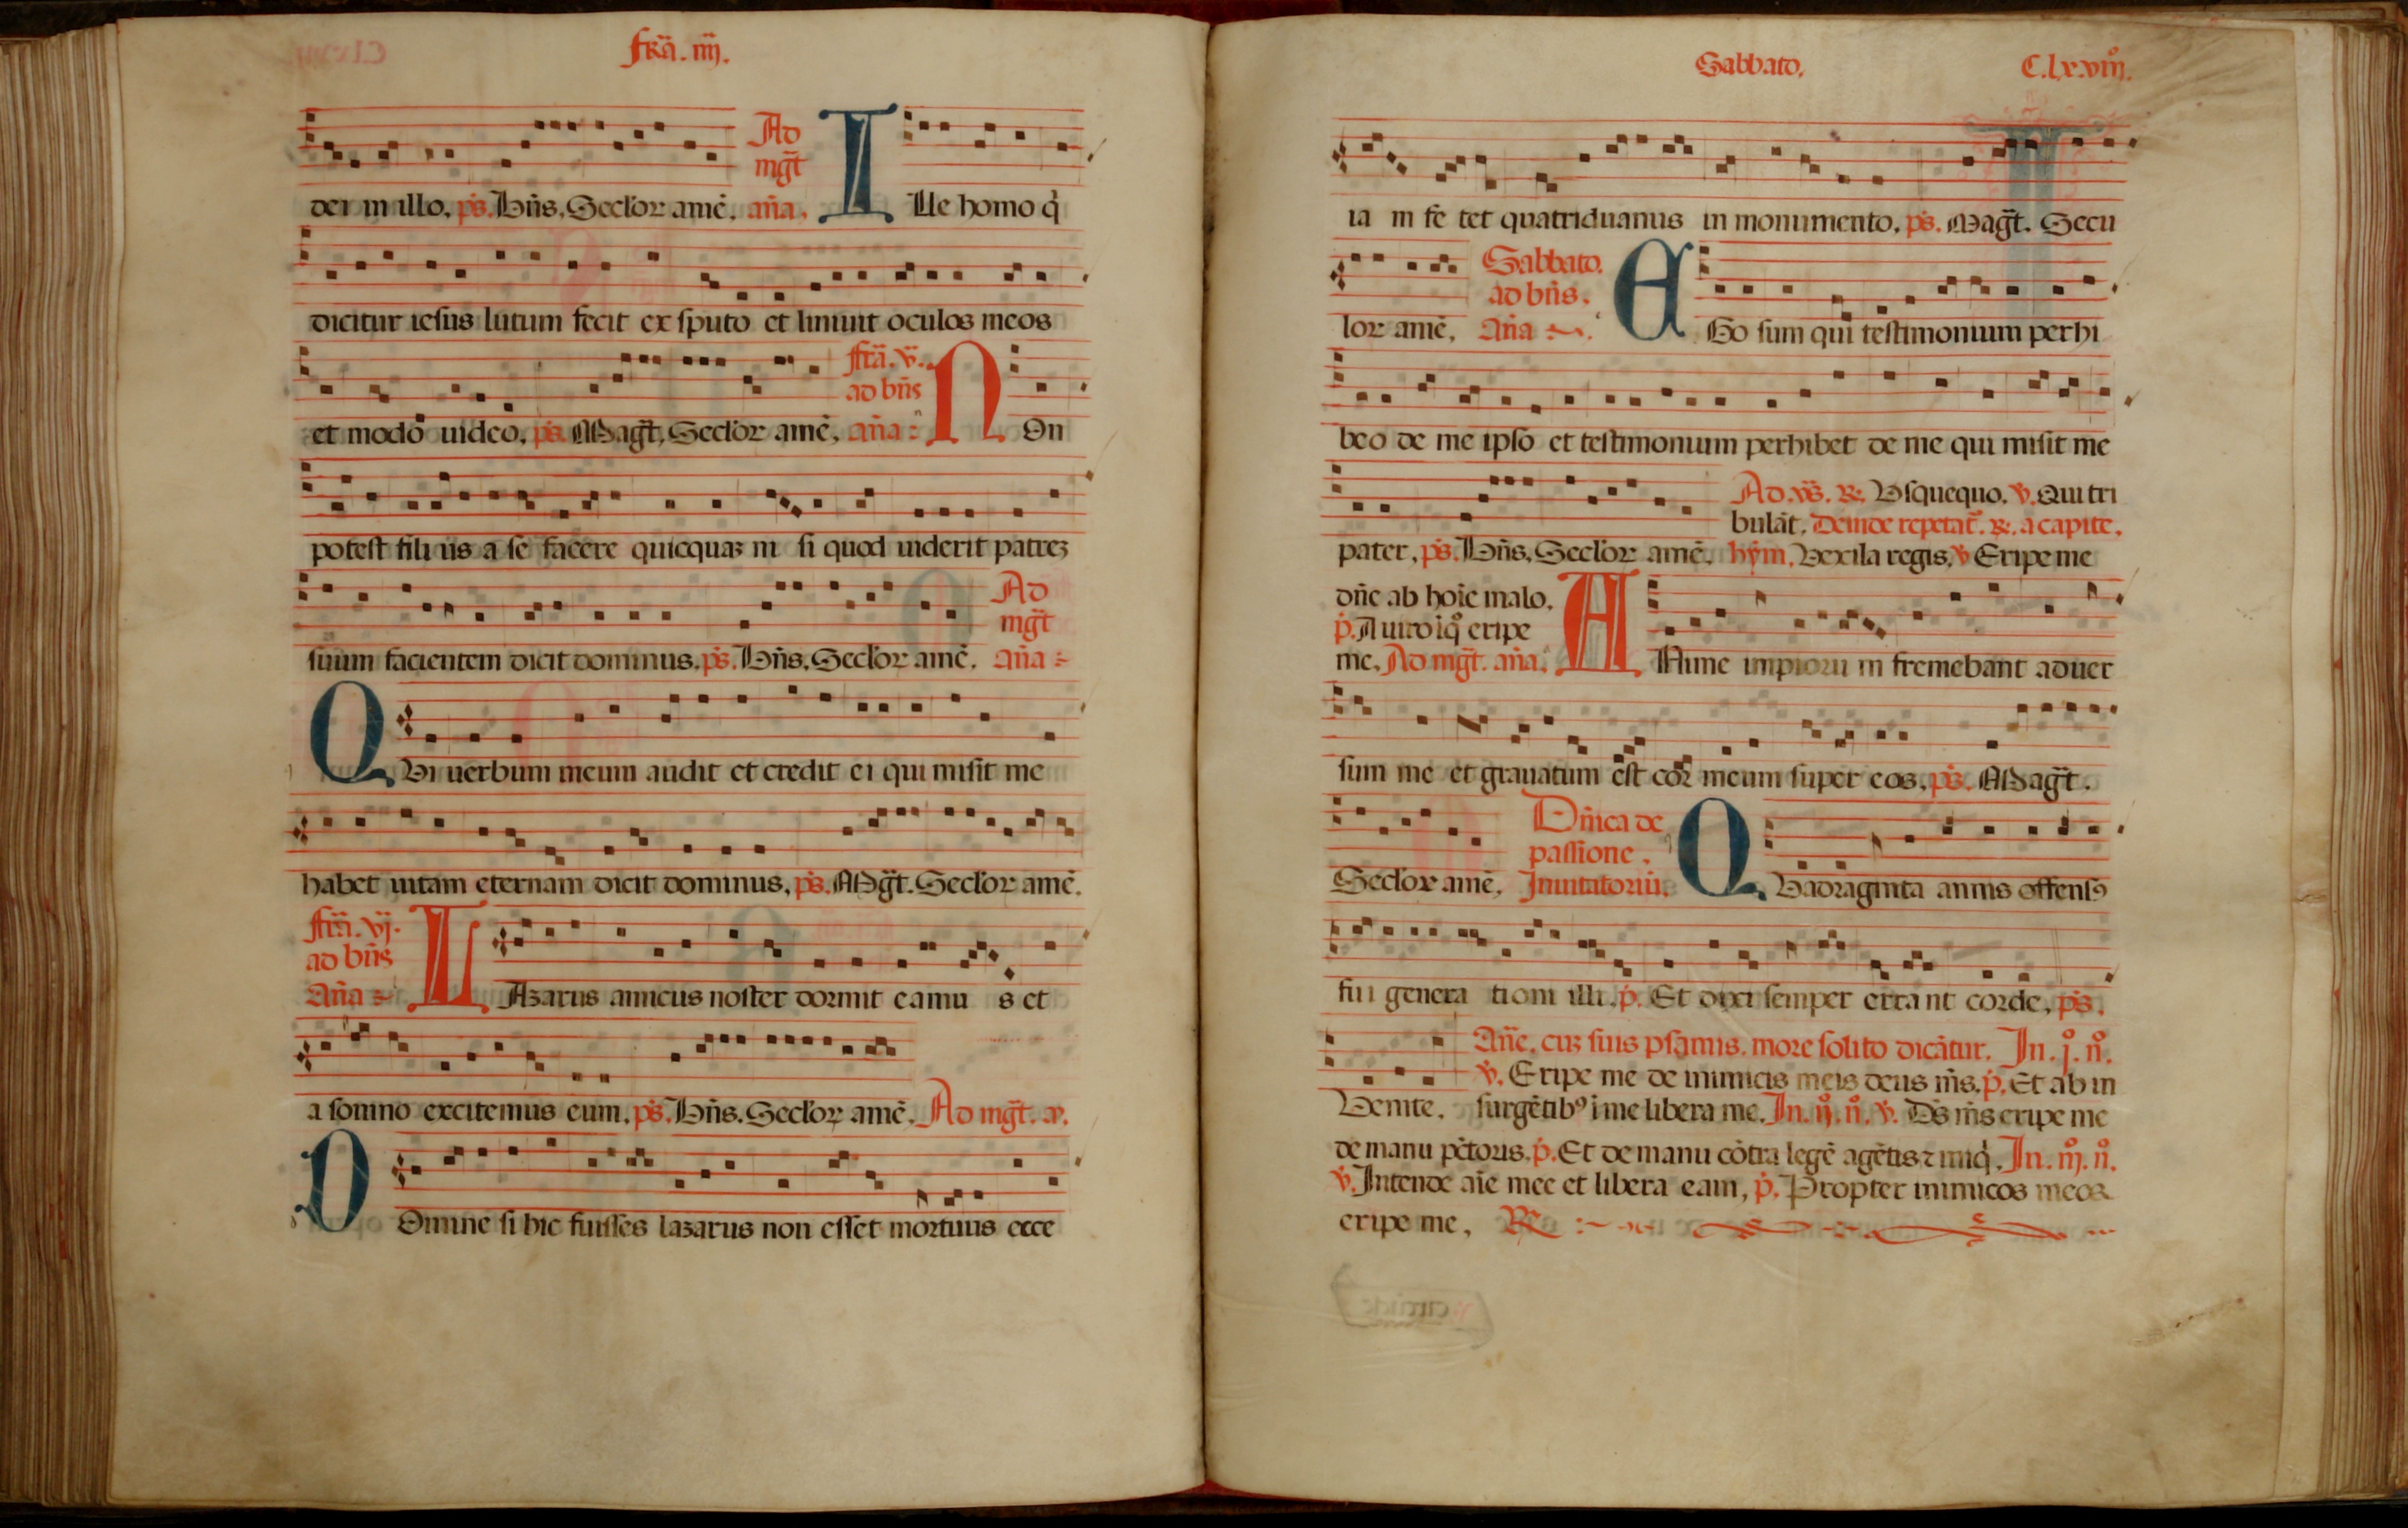 frã. iiij.
dei in illo. ps. Bñs. Sec̃lor amẽ.
Ad
mg̃t
añа.
Ille homo q̇
dicitur iesus lutum fecit ex sputo et liniuit oculos meos
et modo uideo. ps. Mag̃t, Sec̃lor amẽ.
frã. v.
ad bñs
añа:
Non
potest filius a se facere quicquaz ni si quod uiderit patrez
suum facientem dicit dominus. ps. Bñs. Sec̃lor amẽ.
Ad
mg̃t
añа
Qui uerbum meum audit et credit ei qui misit me
habet uitam eternam dicit dominus. ps. Mg̃t. Sec̃lor amẽ.
frã. vj.
ad bñs
Añа
Lazarus amicus noster dormit eamu s et
a somno excitemus eum. ps. Bñs. Sec̃lor amẽ. Ad mg̃t. a.
Domine si hic fuisses lazarus non esset mortuus ecce
Sabbato. C.lx.viij.
ia in fe tet quatriduanus in monumento. ps. Mag̃t. Secu
lor amẽ.
Sabbato.
ad bñs.
Añа
Ego sum qui testimonium perhi
beo de me ipso et testimonium perhibet de me qui misit me
pater. ps. Bñs. Sec̃lor amẽ.
Ad. vs̃. ℞. Usquequo. v. Qui tri
bulãt. Deinde repetat̃. ℞. a capite.
hym. Vexila regis. v Eripe me
dñe ab hoĩe malo.
p. A uiro iq̊ eripe
me. Ad mg̃t. añа.
Anime impioru in fremebant aduer
sum me et grauatum est cor meum super eos. ps. Mag̃t.
Sec̃lor amẽ.
Dñica de
passione.
Inuitatoriũ.
Quadraginta annis offensꝰ
fui genera tioni illi. p. Et dixi semper errant corde. ps.
Venite.
Añe. cuz suis psãmis. more solito dicãtur. In. j̊. n̊.
v. Eripe me de inimicis meis deus ms̃. p. Et ab in
surgẽtibꝰ ĩ me libera me. In. ij̊. n̊. v. Ds̃ ms̃ eripe me
de manu pc̃toris. p. Et de manu cõtra legẽ agẽtis ⁊ iniq̇. In. iij̊. n̊.
v. Intende aĩe mee et libera eam, p. Propter inimicos meos
eripe me. ℞